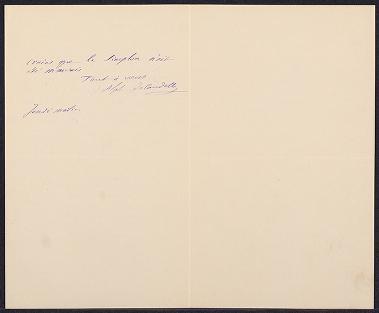 crains que le Simplon n'ait
été mauvais
Tout à vous
Alph.
Jeudi matin.